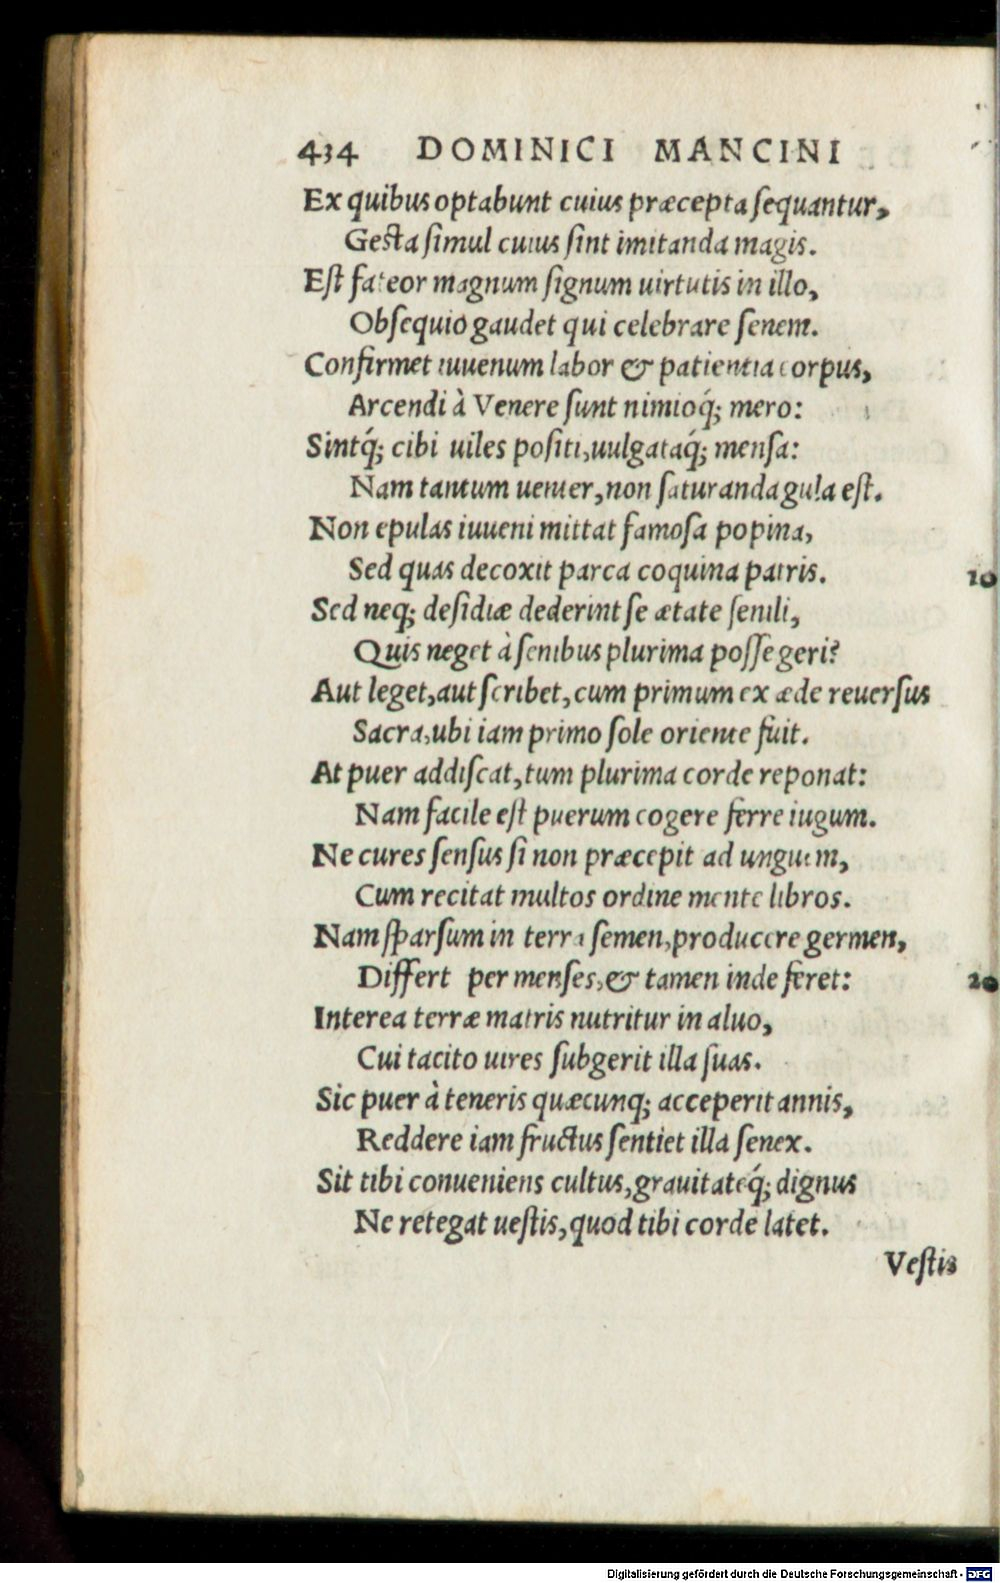 434 DOMINICI MANCINI
Ex quibus optabunt cuius præcepta ſequantur,
Geſta ſimul cuius ſint imitanda magis.
Eſt fateor magnum ſignum uirtutis in illo,
Obſequio gaudet qui celebrare ſenem.
Confirmet iuuenum labor & patientia corpus,
Arcendi à Venere ſunt nimioq́; mero:
Sintq́; cibi uiles poſiti, uulgataq́; menſa:
Nam tantum uenter, non ſaturanda gula eſt.
Non epulas iuueni mittat famoſa popina,
Sed quas decoxit parca coquina patris. 10
Sed neq; deſidiæ dederint ſe ætate ſenili,
Quis neget à ſenibus plurima poſſe geri?
Aut leget, aut ſcribet, cum primum ex æde reuerſus
Sacra, ubi iam primo ſole oriente fuit.
At puer addiſcat, tum plurima corde reponat:
Nam facile eſt puerum cogere ferre iugum.
Ne cures ſenſus ſi non præcepit ad unguem,
Cum recitat multos ordine mente libros.
Nam ſparſum in terra ſemen, producere germen,
Differt per menſes, & tamen inde feret: 20
Interea terræ matris nutritur in aluo,
Cui tacito uires ſubgerit illa ſuas.
Sic puer à teneris quæcunq; acceperit annis,
Reddere iam fructus ſentiet illa ſenex.
Sit tibi conueniens cultus, grauitateq́; dignus
Ne retegat ueſtis, quod tibi corde latet.
Veſtis
Digitalisierung gefördert durch die Deutsche Forschungsgemeinschaft - DFG